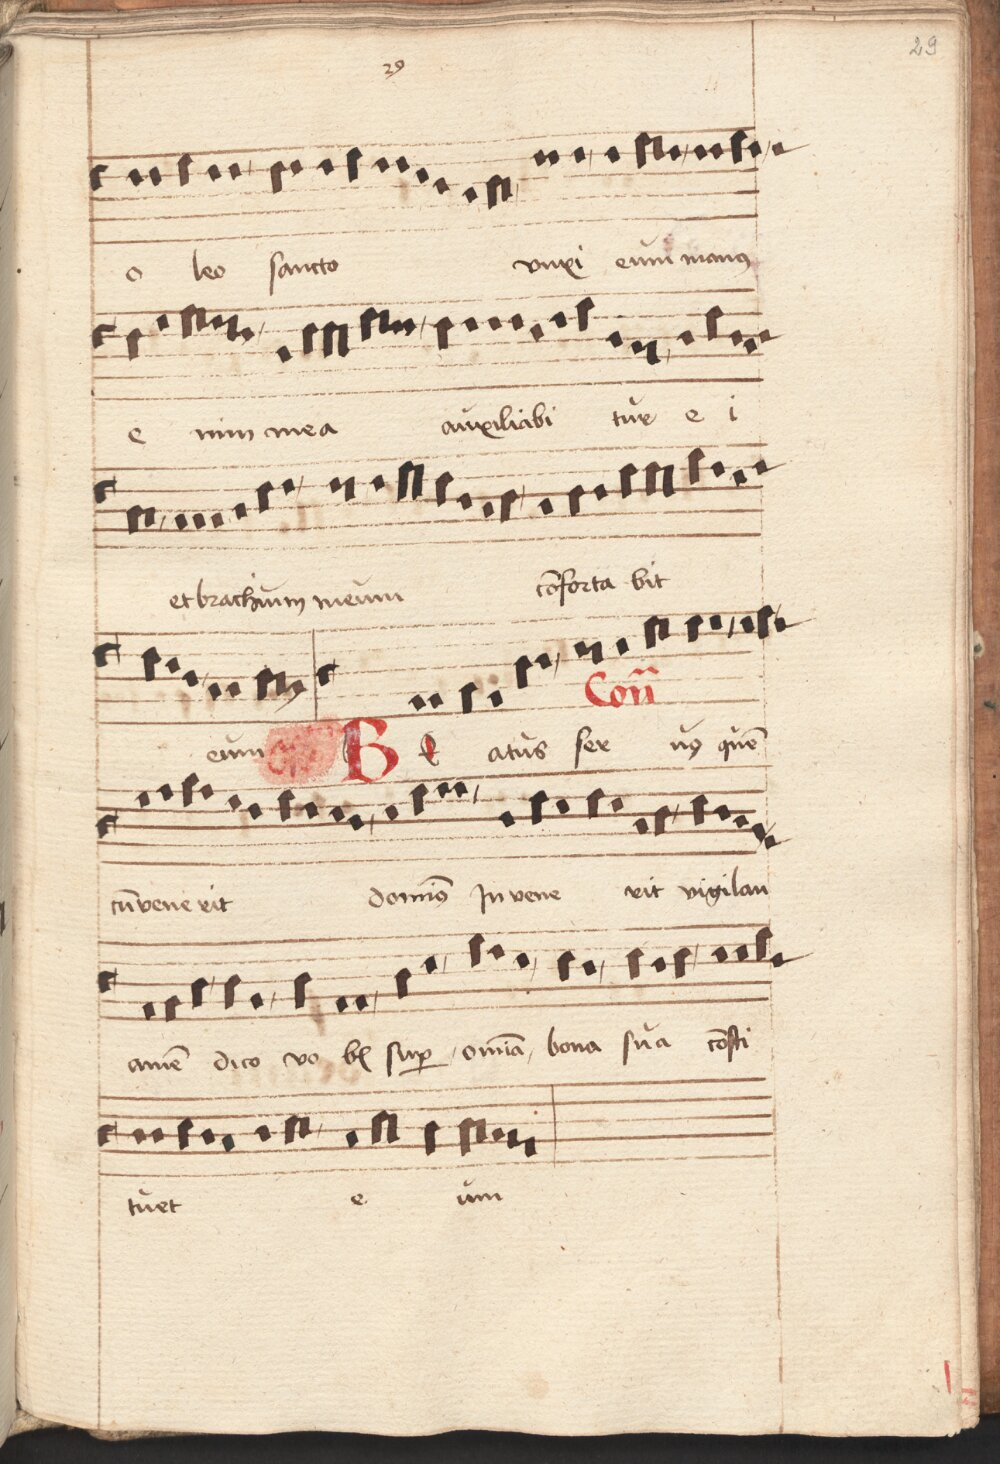 29
29
o leo sancto vnxi eum manus
e nim mea auxiliabi tur e i
et brachium meum cōforta bit
Coñ
eum B e atus ser us quē
cū venerit domis̄ Invene rit vigilan
amē dico vo b sup omīa bona sua cōsti
tuet e um